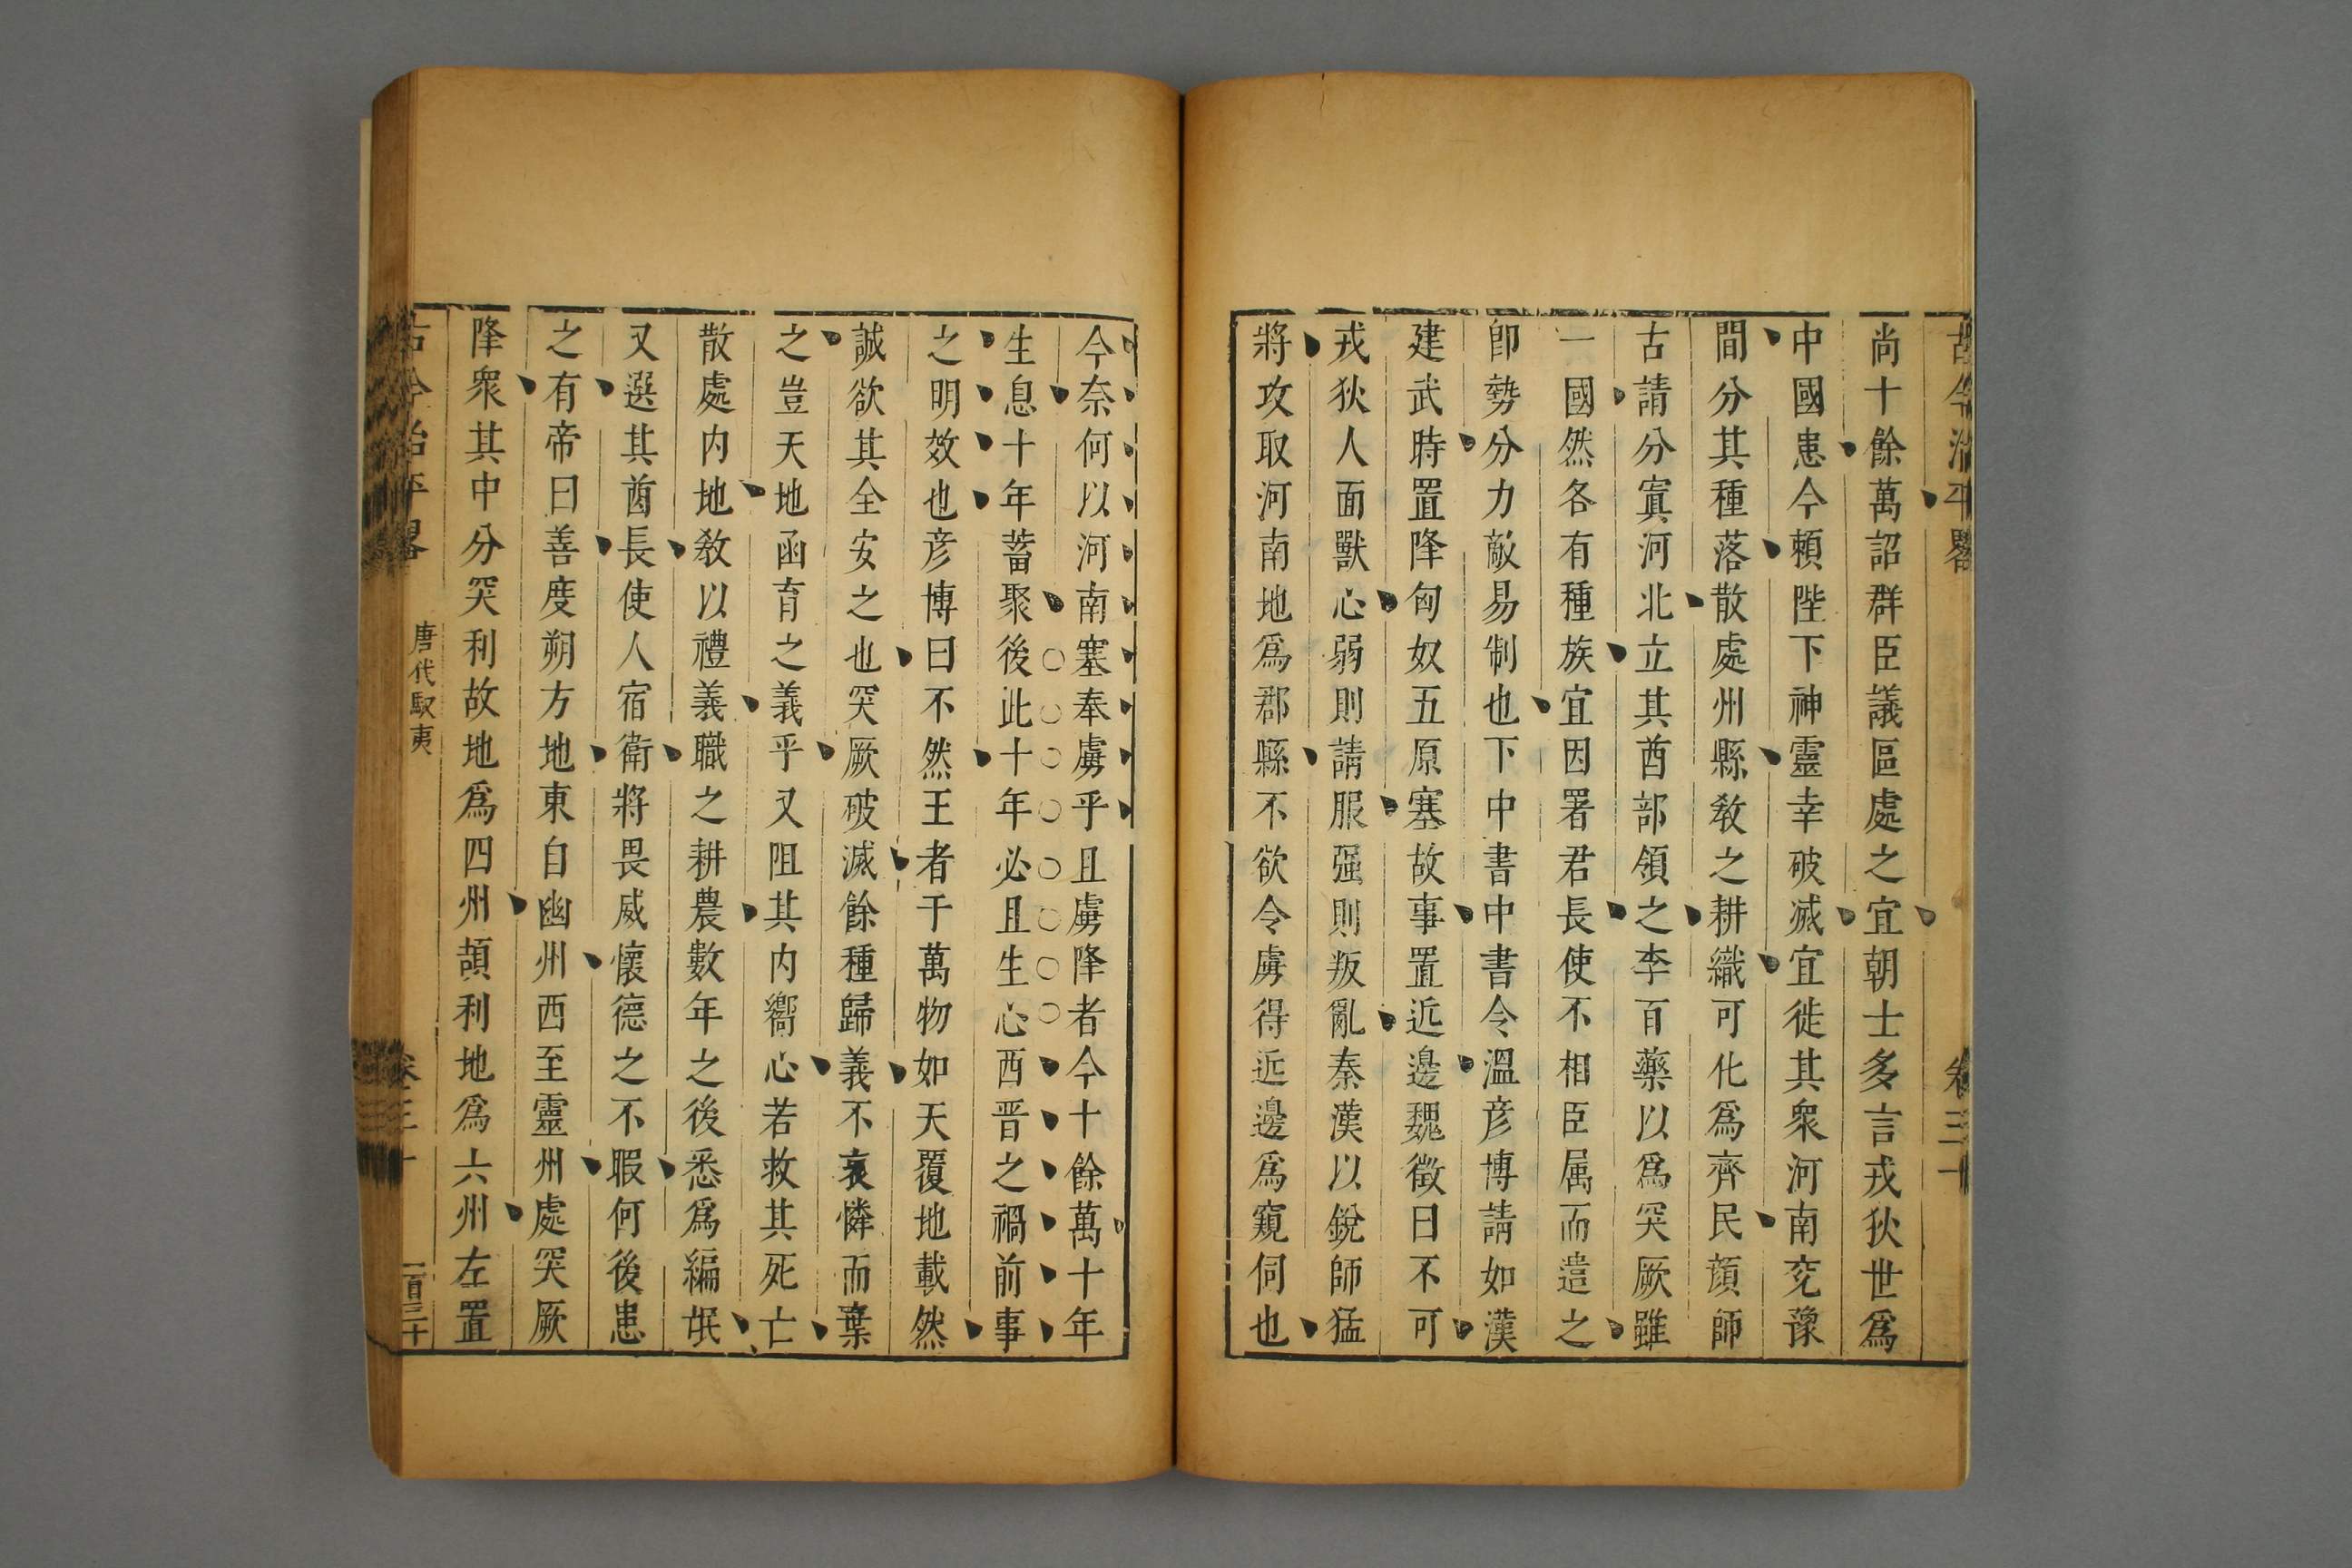 古今治平畧 卷三十
尚十餘萬詔群臣議區處之宜朝士多言戎狄世爲
中國患今頼陛下神靈幸破滅宜徙其衆河南兖豫
間分其種落散處州縣敎之耕織可化爲齊民顔師
古請分寘河北立其酋部領之李百藥以爲突厥雖
一國然各有種族宜因署君長使不相臣属而遣之
卽勢分力敵易制也下中書中書令溫彦博請如漢
建武時置降匈奴五原塞故事置近邊魏徵曰不可
戎狄人面獸心弱則請服强則叛亂秦漢以銳師猛
將攻取河南地爲郡縣不欲令虜得近邊爲窺伺也
今奈何以河南塞奉虜乎且虜降者今十餘萬十年
生息十年蓄聚後此十年必且生心西晋之禍前事
之明效也彦博曰不然王者于萬物如天覆地載然
誠欲其全安之也突厥破滅餘種歸義不哀憐而棄
之豈天地函育之義乎又阻其内嚮心若救其死亡
散處内地敎以禮義職之耕農數年之後悉爲編氓
又選其酋長使人宿衛將畏威懷德之不暇何後患
之有帝曰善度朔方地東自幽州西至靈州處突厥
降衆其中分突利故地爲四州頡利地爲六州左置
古今治平畧 唐代馭夷 卷三十 一百三十